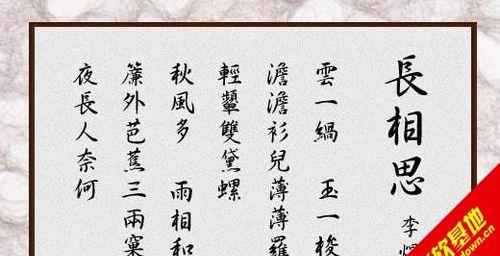 長相思
李
雲一緺 玉一梭
澹澹衫兒薄薄羅
輕顰雙黛螺
秋風多 雨相和
簾外芭蕉三兩窠
夜長人奈何
软基地
down.cn